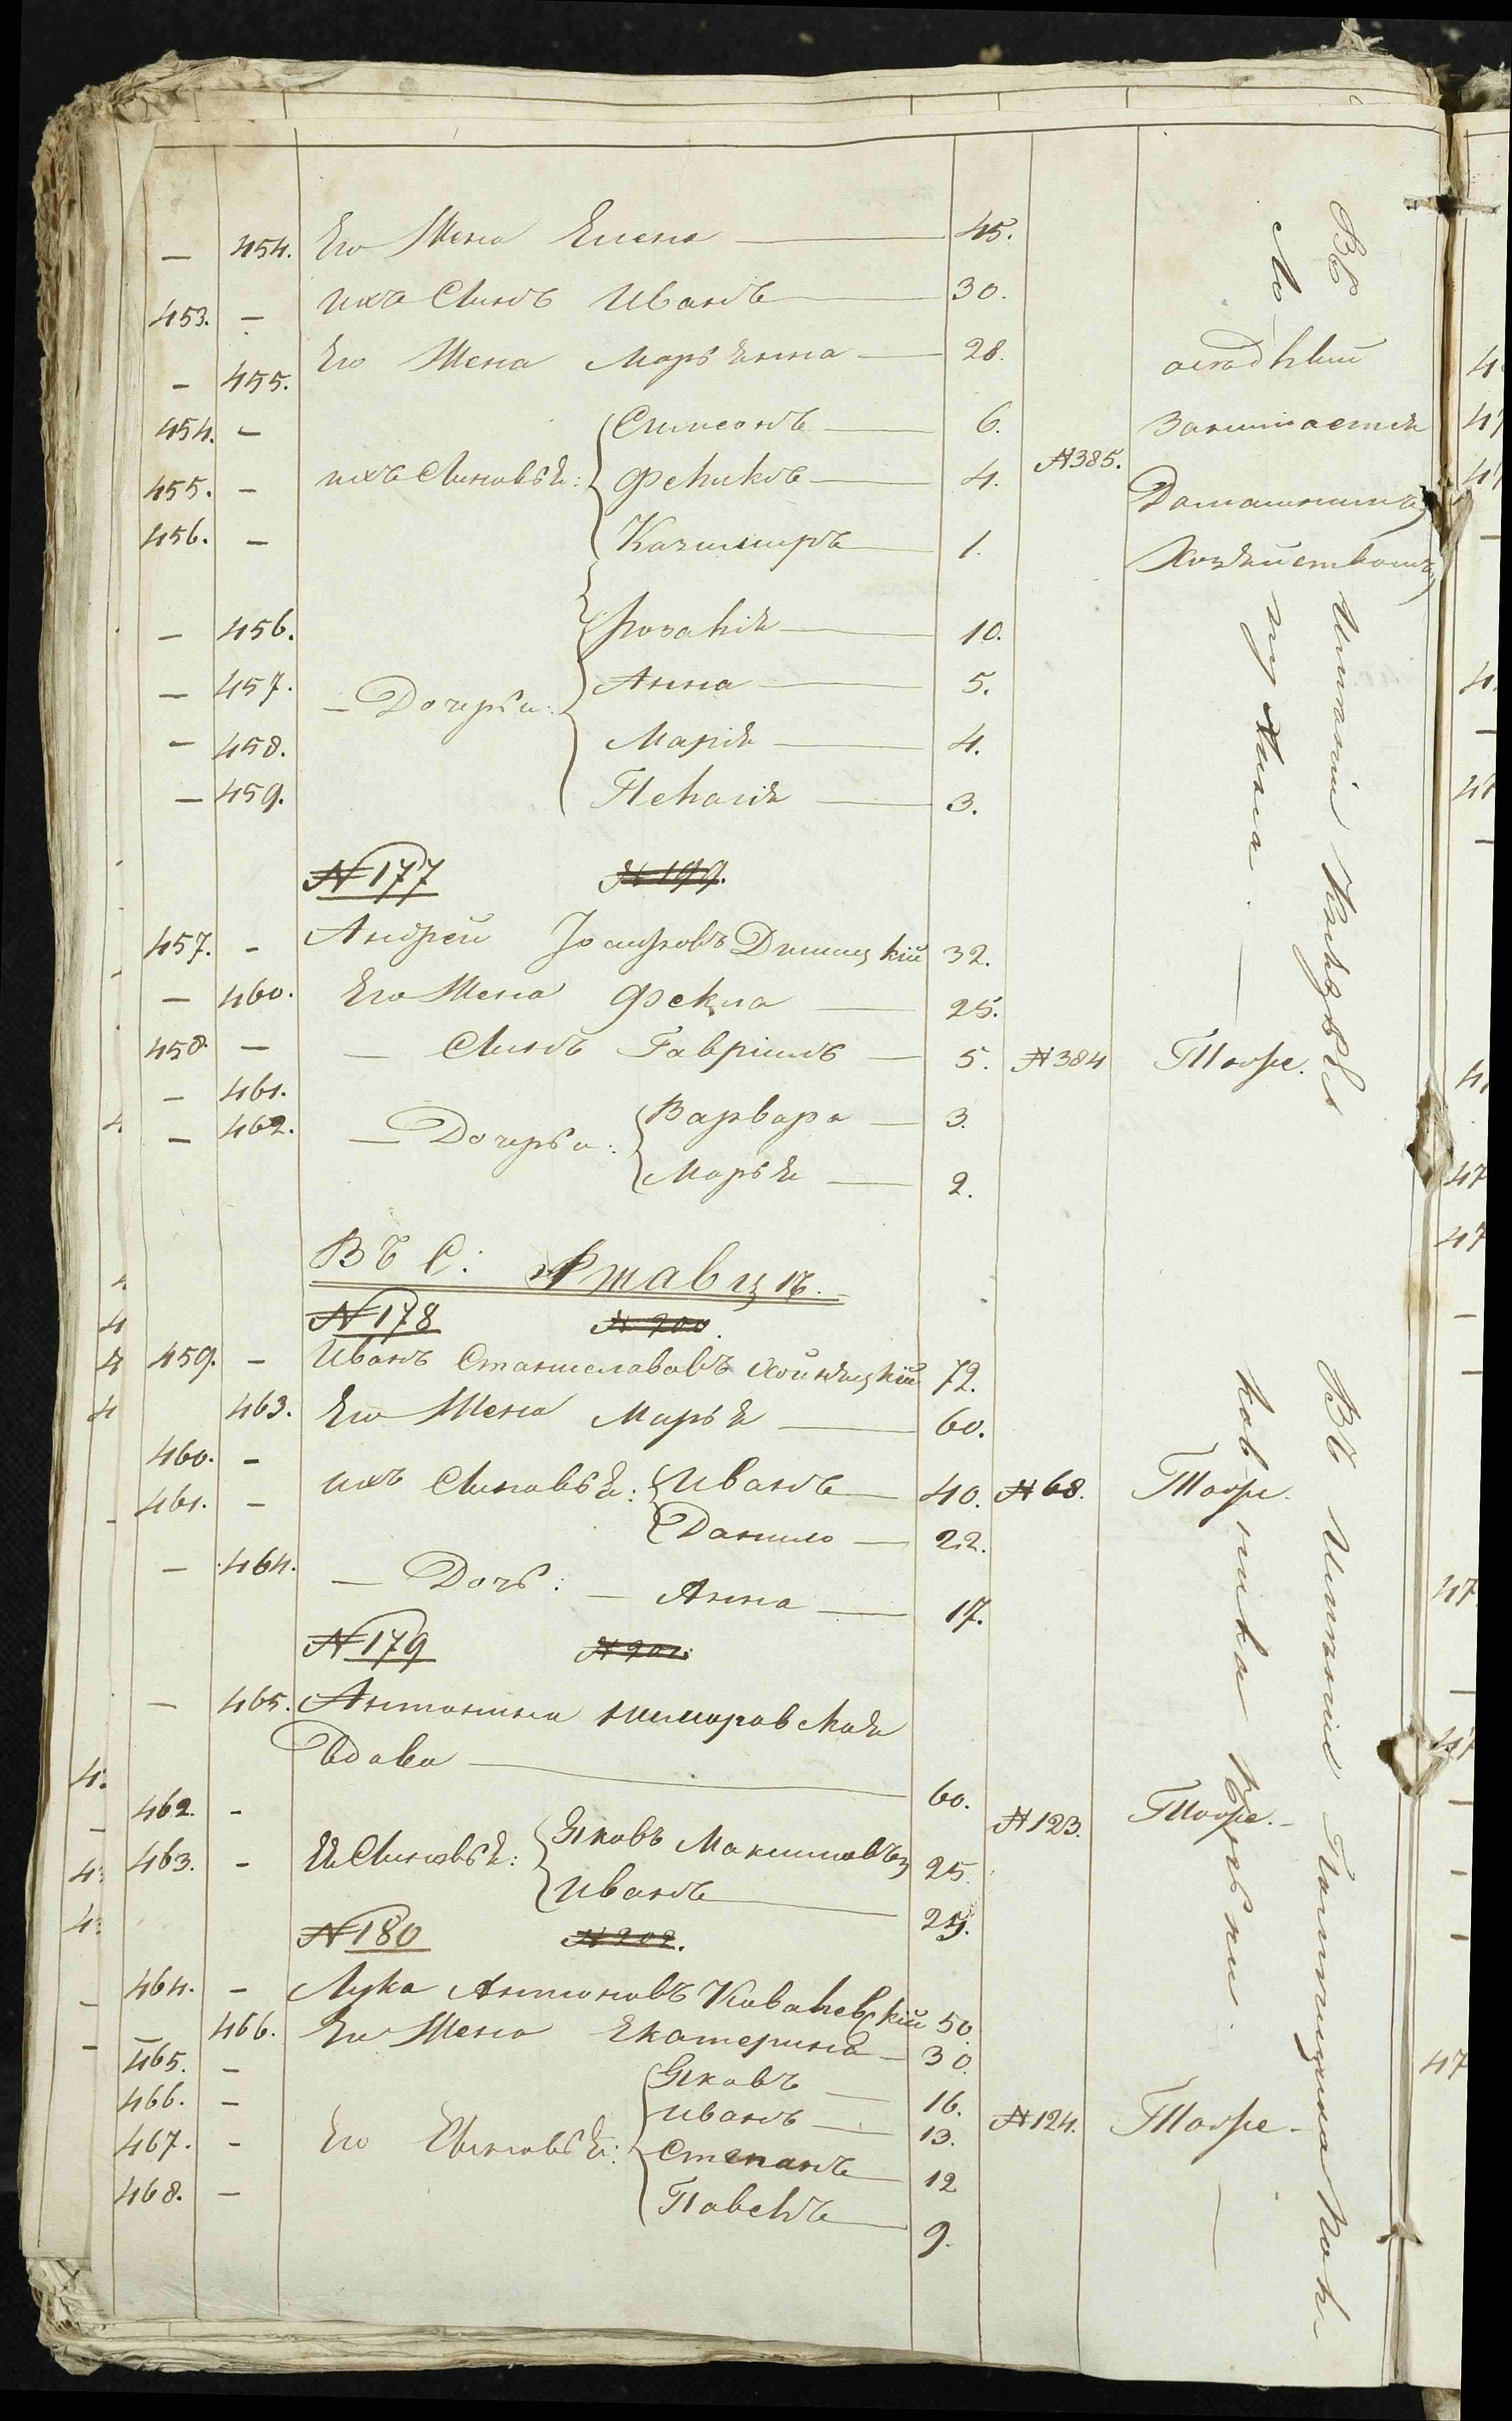 — 454. Его Жена Елена — 45.
453. — ихъ Сынъ Иванъ — 30.
— 455. Его Жена Марьянна — 28.
осѣдлый
454. — Симеонъ — 6.
занимается
455. — ихъ Сыновья: Феликсъ — 4. №385.
Домашнимъ
456. — Казимиръ — 1.
Хозяйствомъ
— 456. Розалія — 10.
— 457. — Дочерьи: Анна — 5.
— 458. Марія — 4.
— 459. Пелагія — 3.
№177 №199.
457. — Андрей Іосифовъ 32.
— 460. Его Жена Фекла — 25.
458. — — Сынъ Гавріилъ — 5. №384 Тоже.
— 461. Варвара — 3.
— 462. — Дочерьи: Марья — 2.
Въ С: Ржавцѣ.
№178 №200.
459. — Иванъ Станиславовъ Хойнацкій 72.
463. Его Жена Марья — 60.
460. — ихъ Сыновья: Иванъ — 40. №68. Тоже.
461. — Данило — 22.
— 464. — Дочь: — Анна — 17.
№179 №201.
— 465. Антонина
Вдова — 60.
462. — Ея Сыновья: Яковъ Максимовъ 25. №123. Тоже.
463. — Иванъ — 24.
№180 №202.
464. — Лука Антоновъ Ковалевскій 50.
466. Его Жена Екатерина — 30.
465. — Яковъ — 16.
466. — Иванъ — 13. №124. Тоже.
467. — Его Сыновья: Степанъ — 12
468. — Павелъ — 9.
Въ Имѣніи Князя
Въ Имѣніи